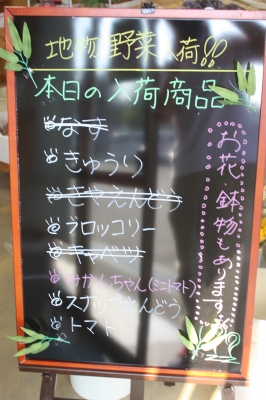 地物野菜入荷!!
本日の入荷商品
なす
きゅうり
きぬさやえんどう
ブロッコリー
キャベツ
みかんちゃん(ミニトマト)
スナップえんどう
トマト
お花・鉢物もあります